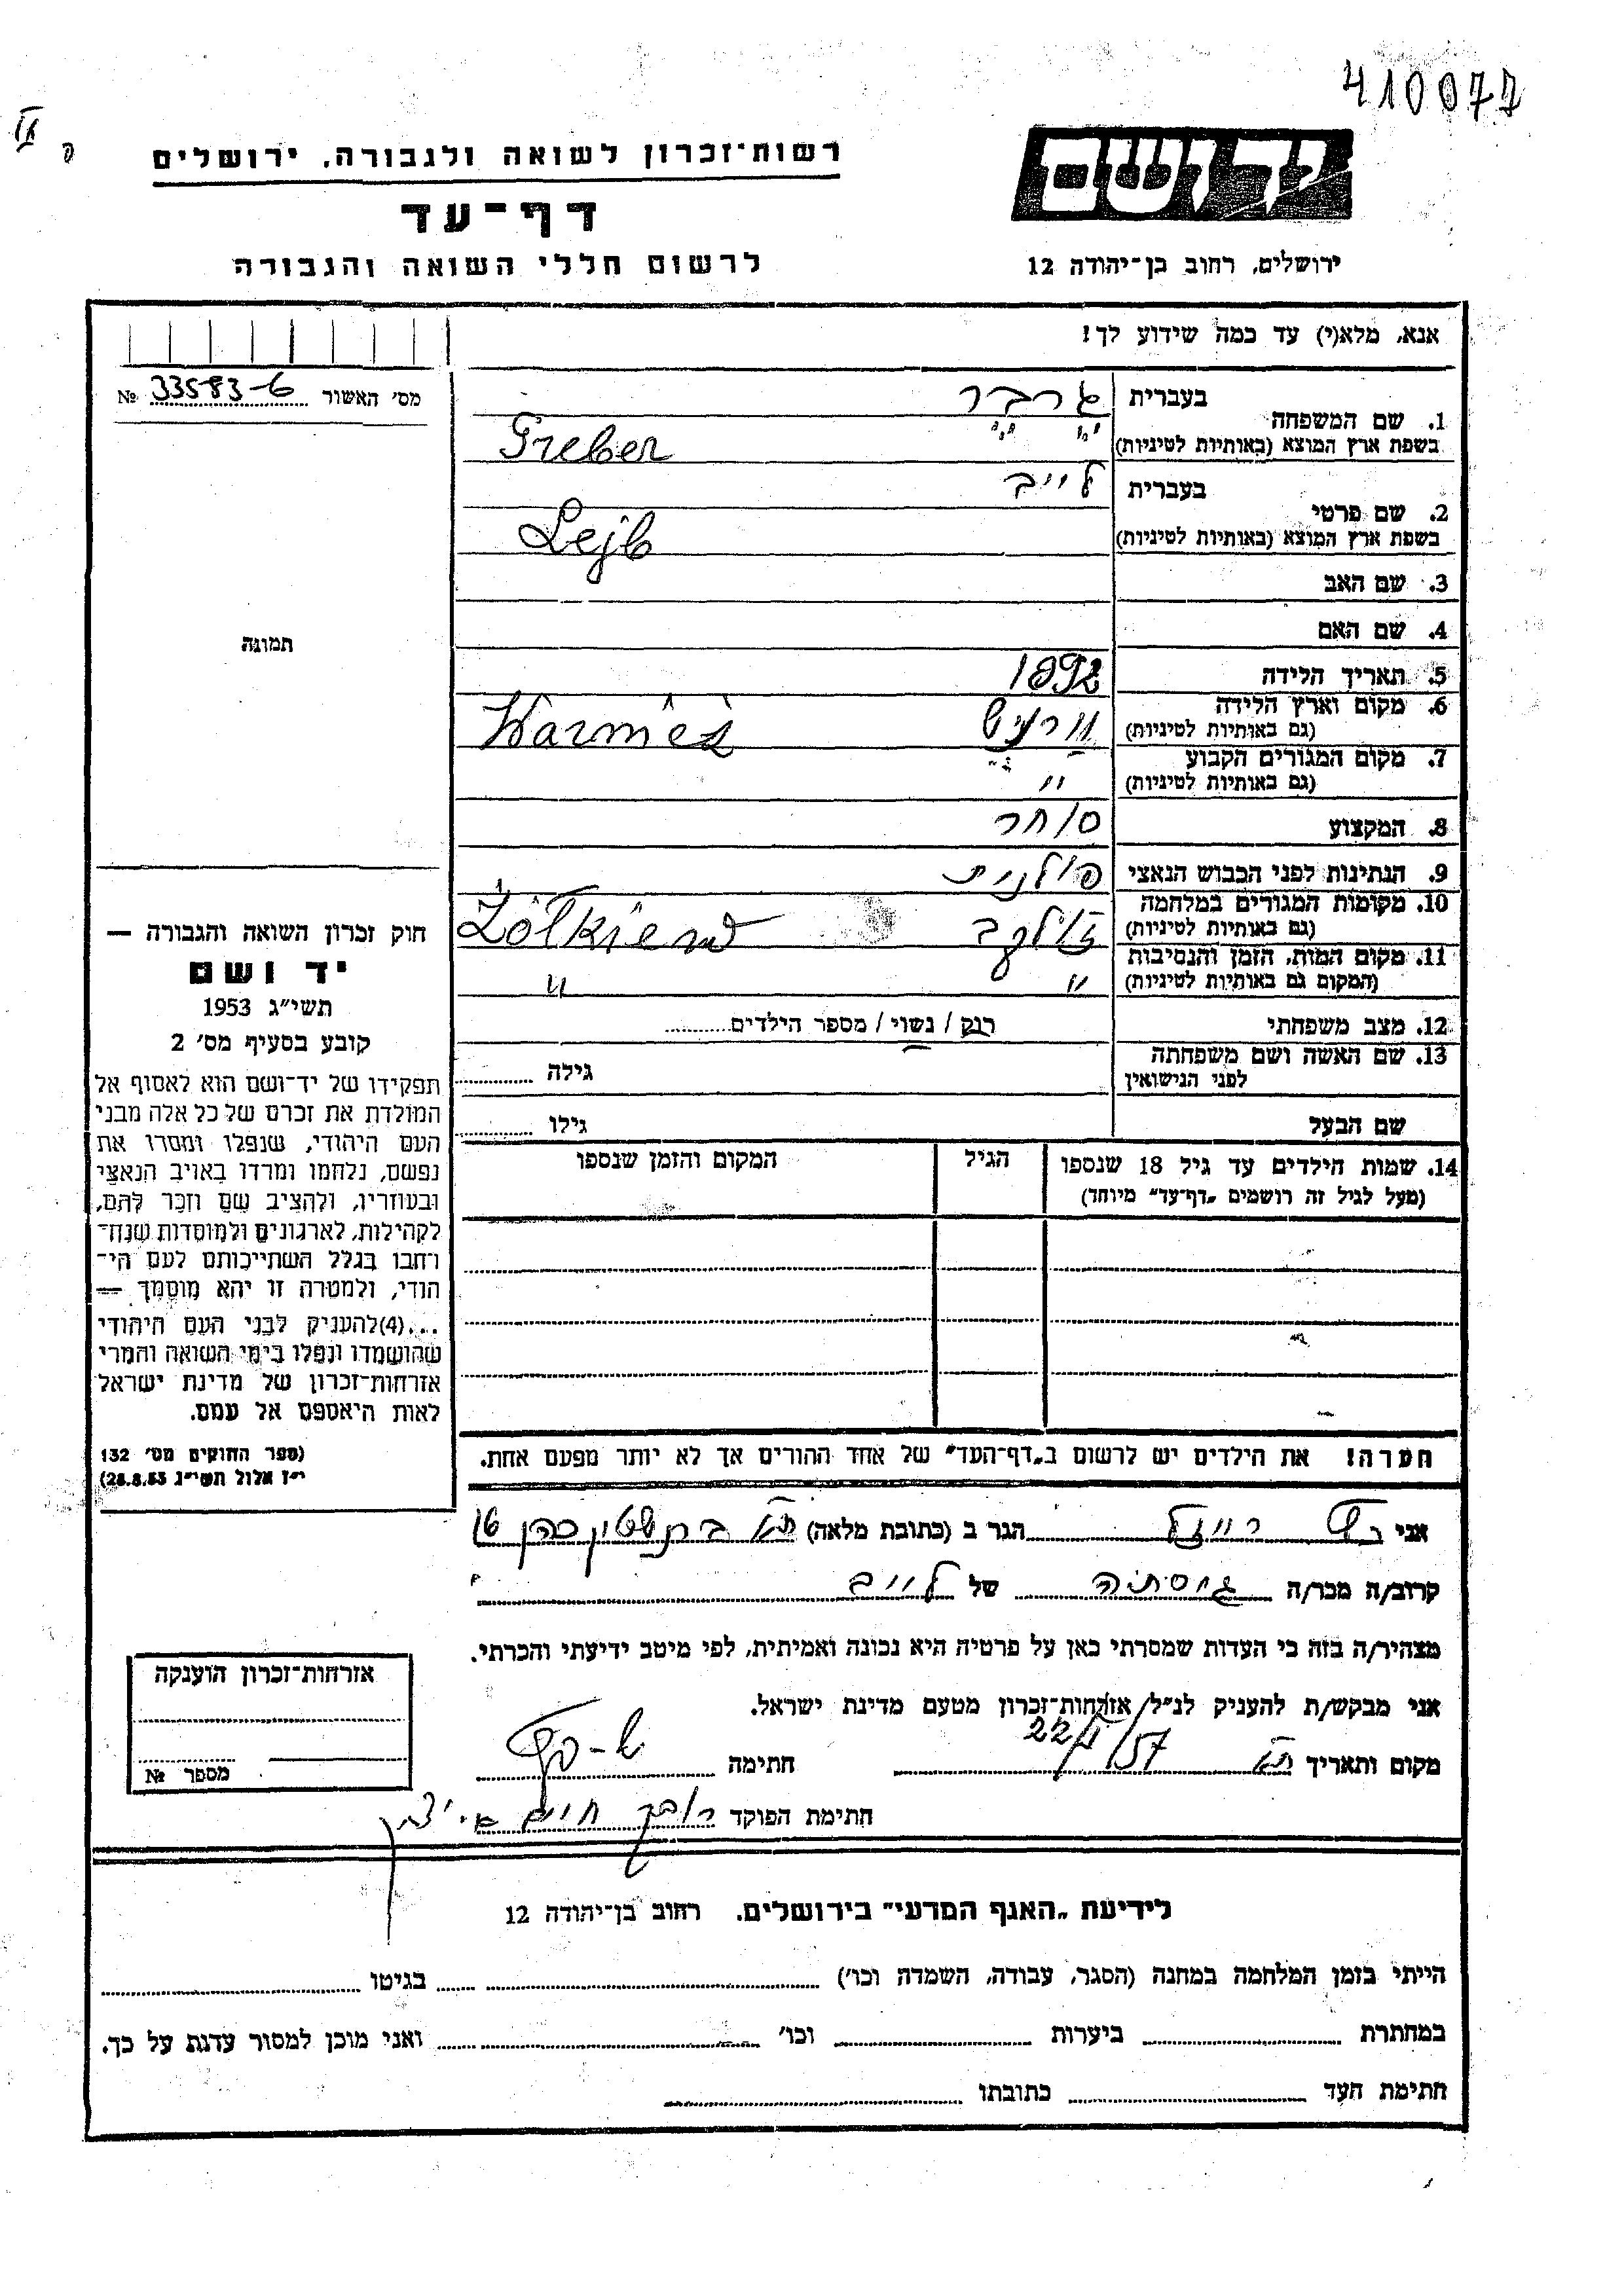 410077
רשות־זכרון לשואה ולגבורה, ירושלים
יד ושם
דף־עד
לרשום חללי השואה והגבורה
ירושלים, רחוב בן־יהודה 12
אנא, מלא(י) עד כמה שידוע לך!
מס׳ האשור 33583-6 №
1. שם המשפחה בעברית גרבר
בשפת ארץ המוצא (באותיות לטיניות) Greber
2. שם פרטי בעברית לייב
בשפת ארץ המוצא (באותיות לטיניות) Lejb
3. שם האב
4. שם האם
תמונה
5. תאריך הלידה 1892
6. מקום וארץ הלידה
(גם באותיות לטיניות)
7. מקום המגורים הקבוע
(גם באותיות לטיניות) "
8. המקצוע סוחר
9. הנתינות לפני הכבוש הנאצי פולנית
10. מקומות המגורים במלחמה
(גם באותיות לטיניות) Żółkiew
11. מקום המות, הזמן והנסיבות
(המקום גם באותיות לטיניות) " "
12. מצב משפחתי רוק / נשוי / מספר הילדים
13. שם האשה ושם משפחתה
לפני הנישואין גילה
שם הבעל גילו
14. שמות הילדים עד גיל 18 שנספו הגיל המקום והזמן שנספו
(מעל לגיל זה רושמים „דף־עד" מיוחד)
חוק זכרון השואה והגבורה —
יד ושם
תשי״ג 1953
קובע בסעיף מס׳ 2
תפקידו של יד־ושם הוא לאסוף אל
המולדת את זכרם של כל אלה מבני
העם היהודי, שנפלו ומסרו את
נפשם, נלחמו ומרדו באויב הנאצי
ובעוזריו, ולהציב שם וזכר להם,
לקהילות, לארגונים ולמוסדות שנח־
רחבו בגלל השתייכותם לעם הי־
הודי, ולמטרה זו יהא מוסמך —
...(4)להעניק לבני העם היהודי
שהושמדו ונפלו בימי השואה והמרי
אזרחות־זכרון של מדינת ישראל
לאות היאספם אל עמם.
(ספר החוקים מס׳ 132
י״ז אלול תשי״ג 28.8.53)
הערה! את הילדים יש לרשום ב„דף־העד" של אחד ההורים אך לא יותר מפעם אחת.
אני הגר ב (כתובת מלאה) ת״א
קרוב/ה מכר/ה של לייב
מצהיר/ה בזה כי העדות שמסרתי כאן על פרטיה היא נכונה ואמיתית, לפי מיטב ידיעתי והכרתי.
אני מבקש/ת להעניק לנ״ל/ אזרחות־זכרון מטעם מדינת ישראל.
מקום ותאריך ת״א חתימה
חתימת הפוקד
אזרחות־זכרון הוענקה
מספר №
לידיעת „האגף המדעי" בירושלים, רחוב בן־יהודה 12
הייתי בזמן המלחמה במחנה (הסגר, עבודה, השמדה וכו׳) בגיטו
במחתרת ביערות וכו׳ ואני מוכן למסור עדות על כך.
חתימת העד כתובתו